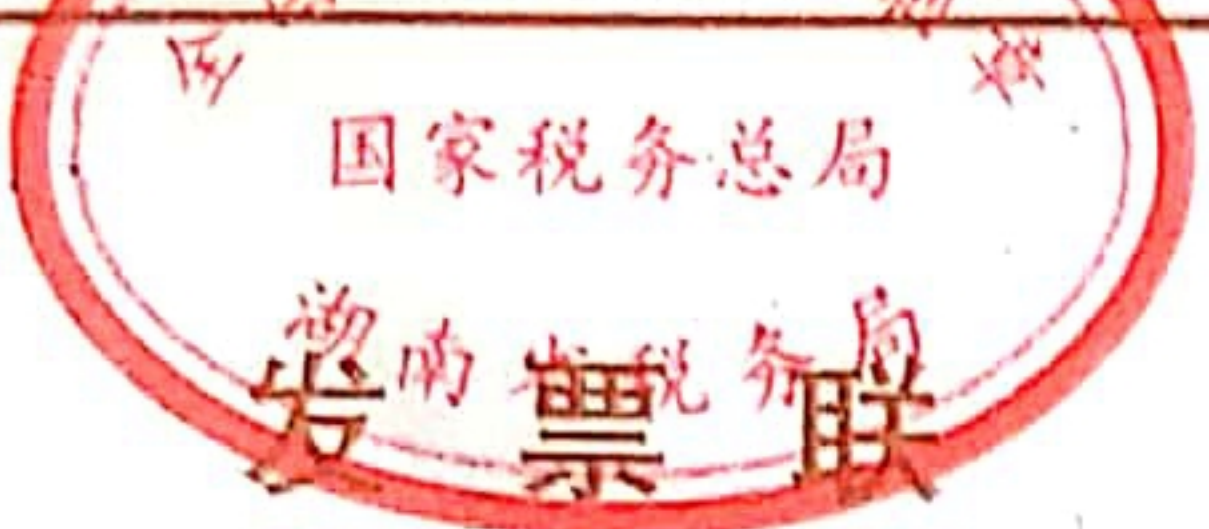 国家税务总局
湖南省税务局
发票联